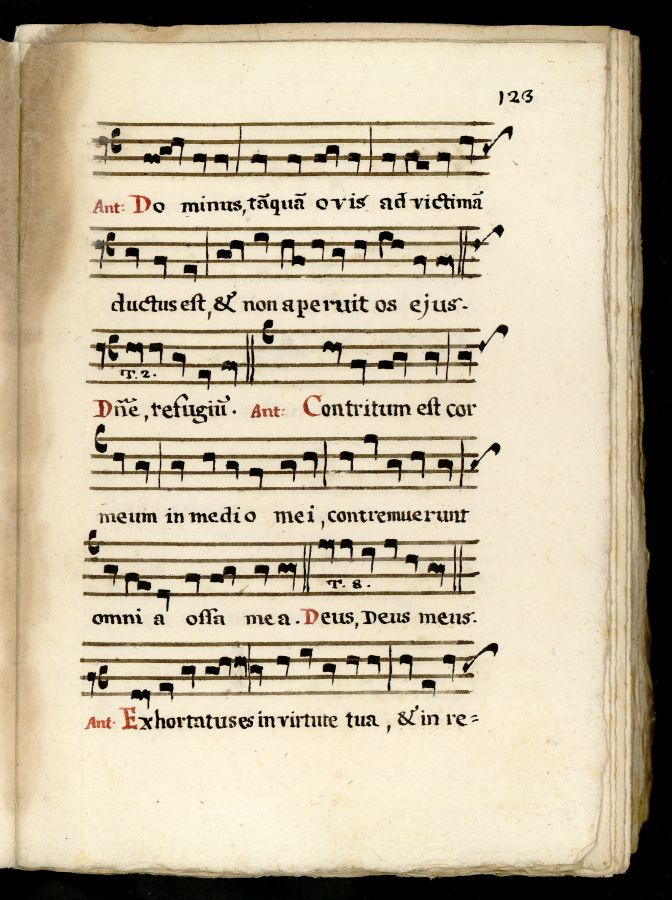 123
Ant: Do minus, tãquã ovis ad victimã
ductus est, & non aperuit os ejus.
T. 2.
Dñe, refugiũ. Ant: Contritum est cor
meum in medio mei, contremuerunt
T. 8.
omni a ossa mea. Deus, Deus meus.
Ant. Exhortatus es in virtute tua, & in re=